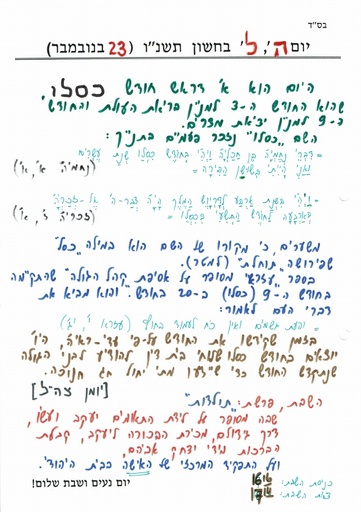 בס"ד
יום ה', ל' בחשון תשנ"ו (23 בנובמבר)
היום הוא א' דראש חודש כסלו,
שהוא החודש ה-3 למנין בריאת העולם והחודש
ה-9 למנין יציאת מצרים.
השם "כסלו" נזכר פעמיים בתנ"ך:
= דברי נחמיה בן חכליה ויהי בחודש כסלו שנת עשרים
ואני הייתי בשושן הבירה = (נחמיה א', א')
= ויהי בשנת ארבע לדריוש המלך היה דבר-ה' אל-זכריה
בארבעה לחודש התשיעי בכסלו = (זכריה ז', א')
משערים, כי מקורו של השם הוא במילה "כסל"
שפירושה "תוחלת" (למטר).
בספר "עזרא" מסופר על אסיפת "קהל הגולה" שהתקיימה
בחודש ה-9 (כסלו) ב-20 בחודש. והוא מביא את
דברי העם לאמור:
= והעת גשמים ואין כח לעמוד בחוץ (עזרא י', יג')
בזמן שקידשו את החודש על-פי עדי-ראיה, היו
יוצאים בחודש כסלו שלוחי בית דין להודיע לבני הגולה
שנתקדש החודש כדי שידעו מתי יחול חג חנוכה.
[יומן צה"ל]
השבת, פרשת: "תולדות"
שבה מסופר על לידת התאומים יעקב ועשו,
דרך גידולם, מכירת הבכורה ליעקב, קבלת
הברכות מידי יצחק אביהם,
ועל התפקיד המרכזי של האישה בבית היהודי.
יום נעים ושבת שלום!
כניסת השבת:
צאת השבת: